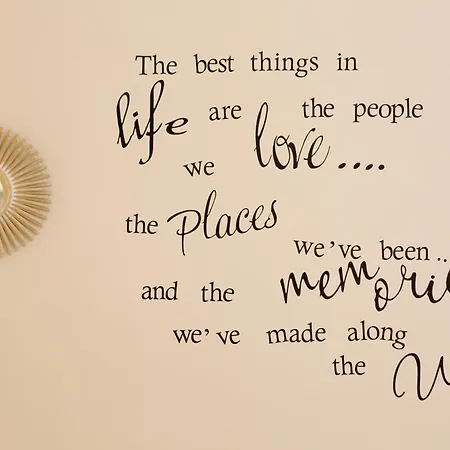 The best things in
life are the people
we love....
the places
we've been..
and the memorie
we've made along
the W